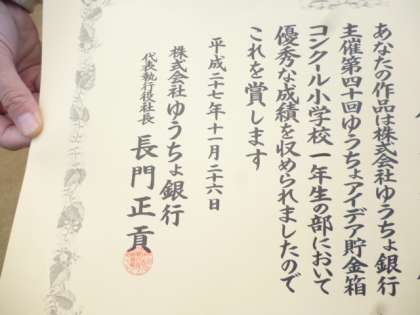 あなたの作品は株式会社ゆうちょ銀行
主催第四十回ゆうちょアイデア貯金箱
コンクール小学校一年生の部において
優秀な成績を収められましたので
これを賞します
平成二十七年十一月二十六日
株式会社ゆうちょ銀行
代表執行役社長
長門正貢